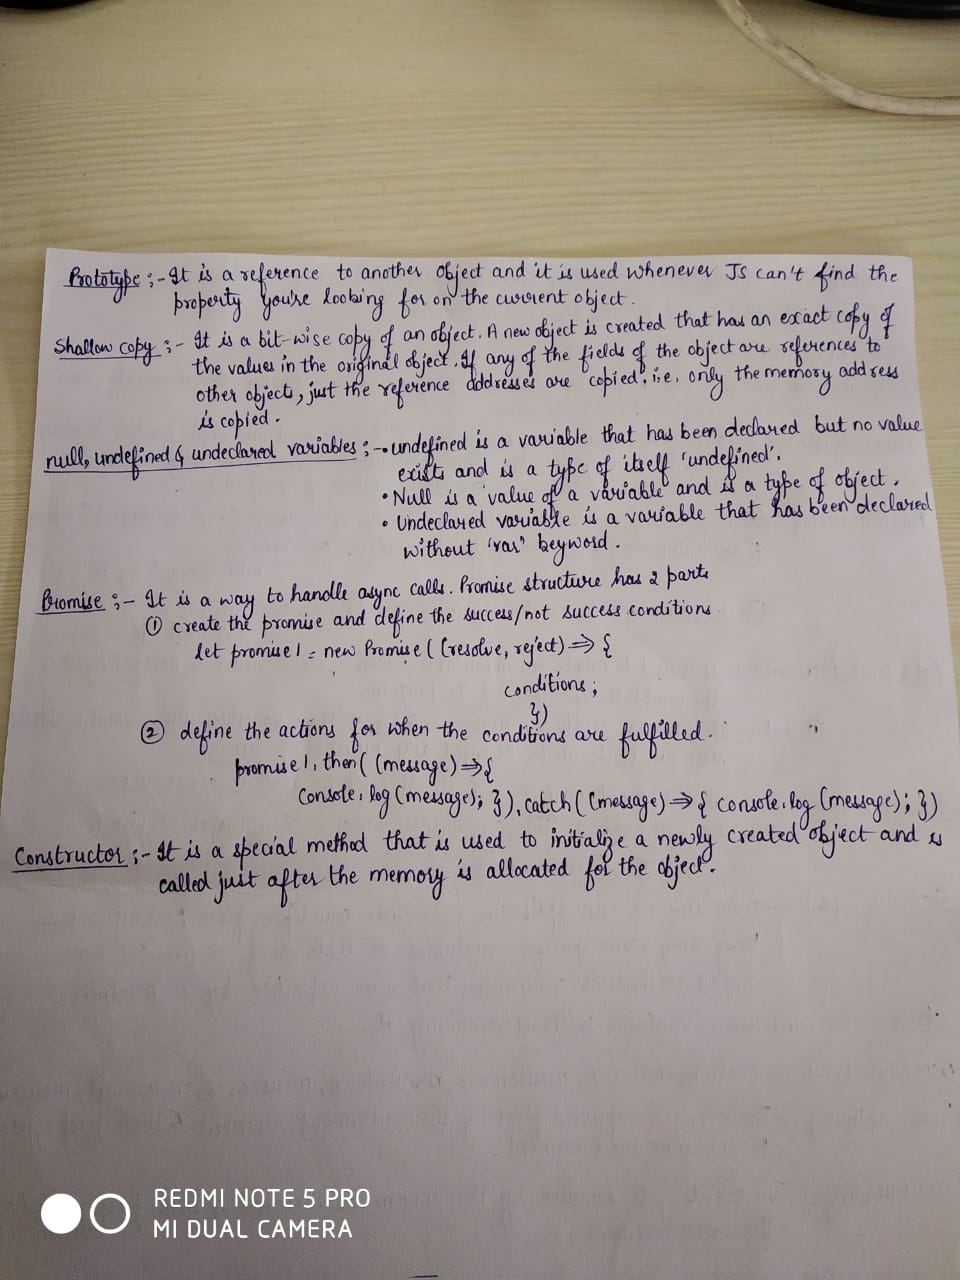 Prototype :- It is a reference to another object and it is used whenever JS can't find the
property you're looking for on the current object.
Shallow copy :- It is a bit-wise copy of an object. A new object is created that has an exact copy of
the values in the original object. If any of the fields of the object are references to
other objects, just the reference addresses are copied. i.e, only the memory address
is copied.
null, undefined & undeclared variables :- • undefined is a variable that has been declared but no value
exists and is a type of itself 'undefined'.
• Null is a value of a variable and is a type of object.
• Undeclared variable is a variable that has been declared
without 'var' keyword.
Promise :- It is a way to handle async calls. Promise structure has 2 parts
① create the promise and define the success/not success conditions
let promise1 = new Promise ( (resolve, reject) => {
conditions ;
})
② define the actions for when the conditions are fulfilled.
promise1. then ( (message) => {
Console. log (message); }). catch ( (message) => { console. log (message); })
Constructor :- It is a special method that is used to initialize a newly created object and is
called just after the memory is allocated for the object.
REDMI NOTE 5 PRO
MI DUAL CAMERA